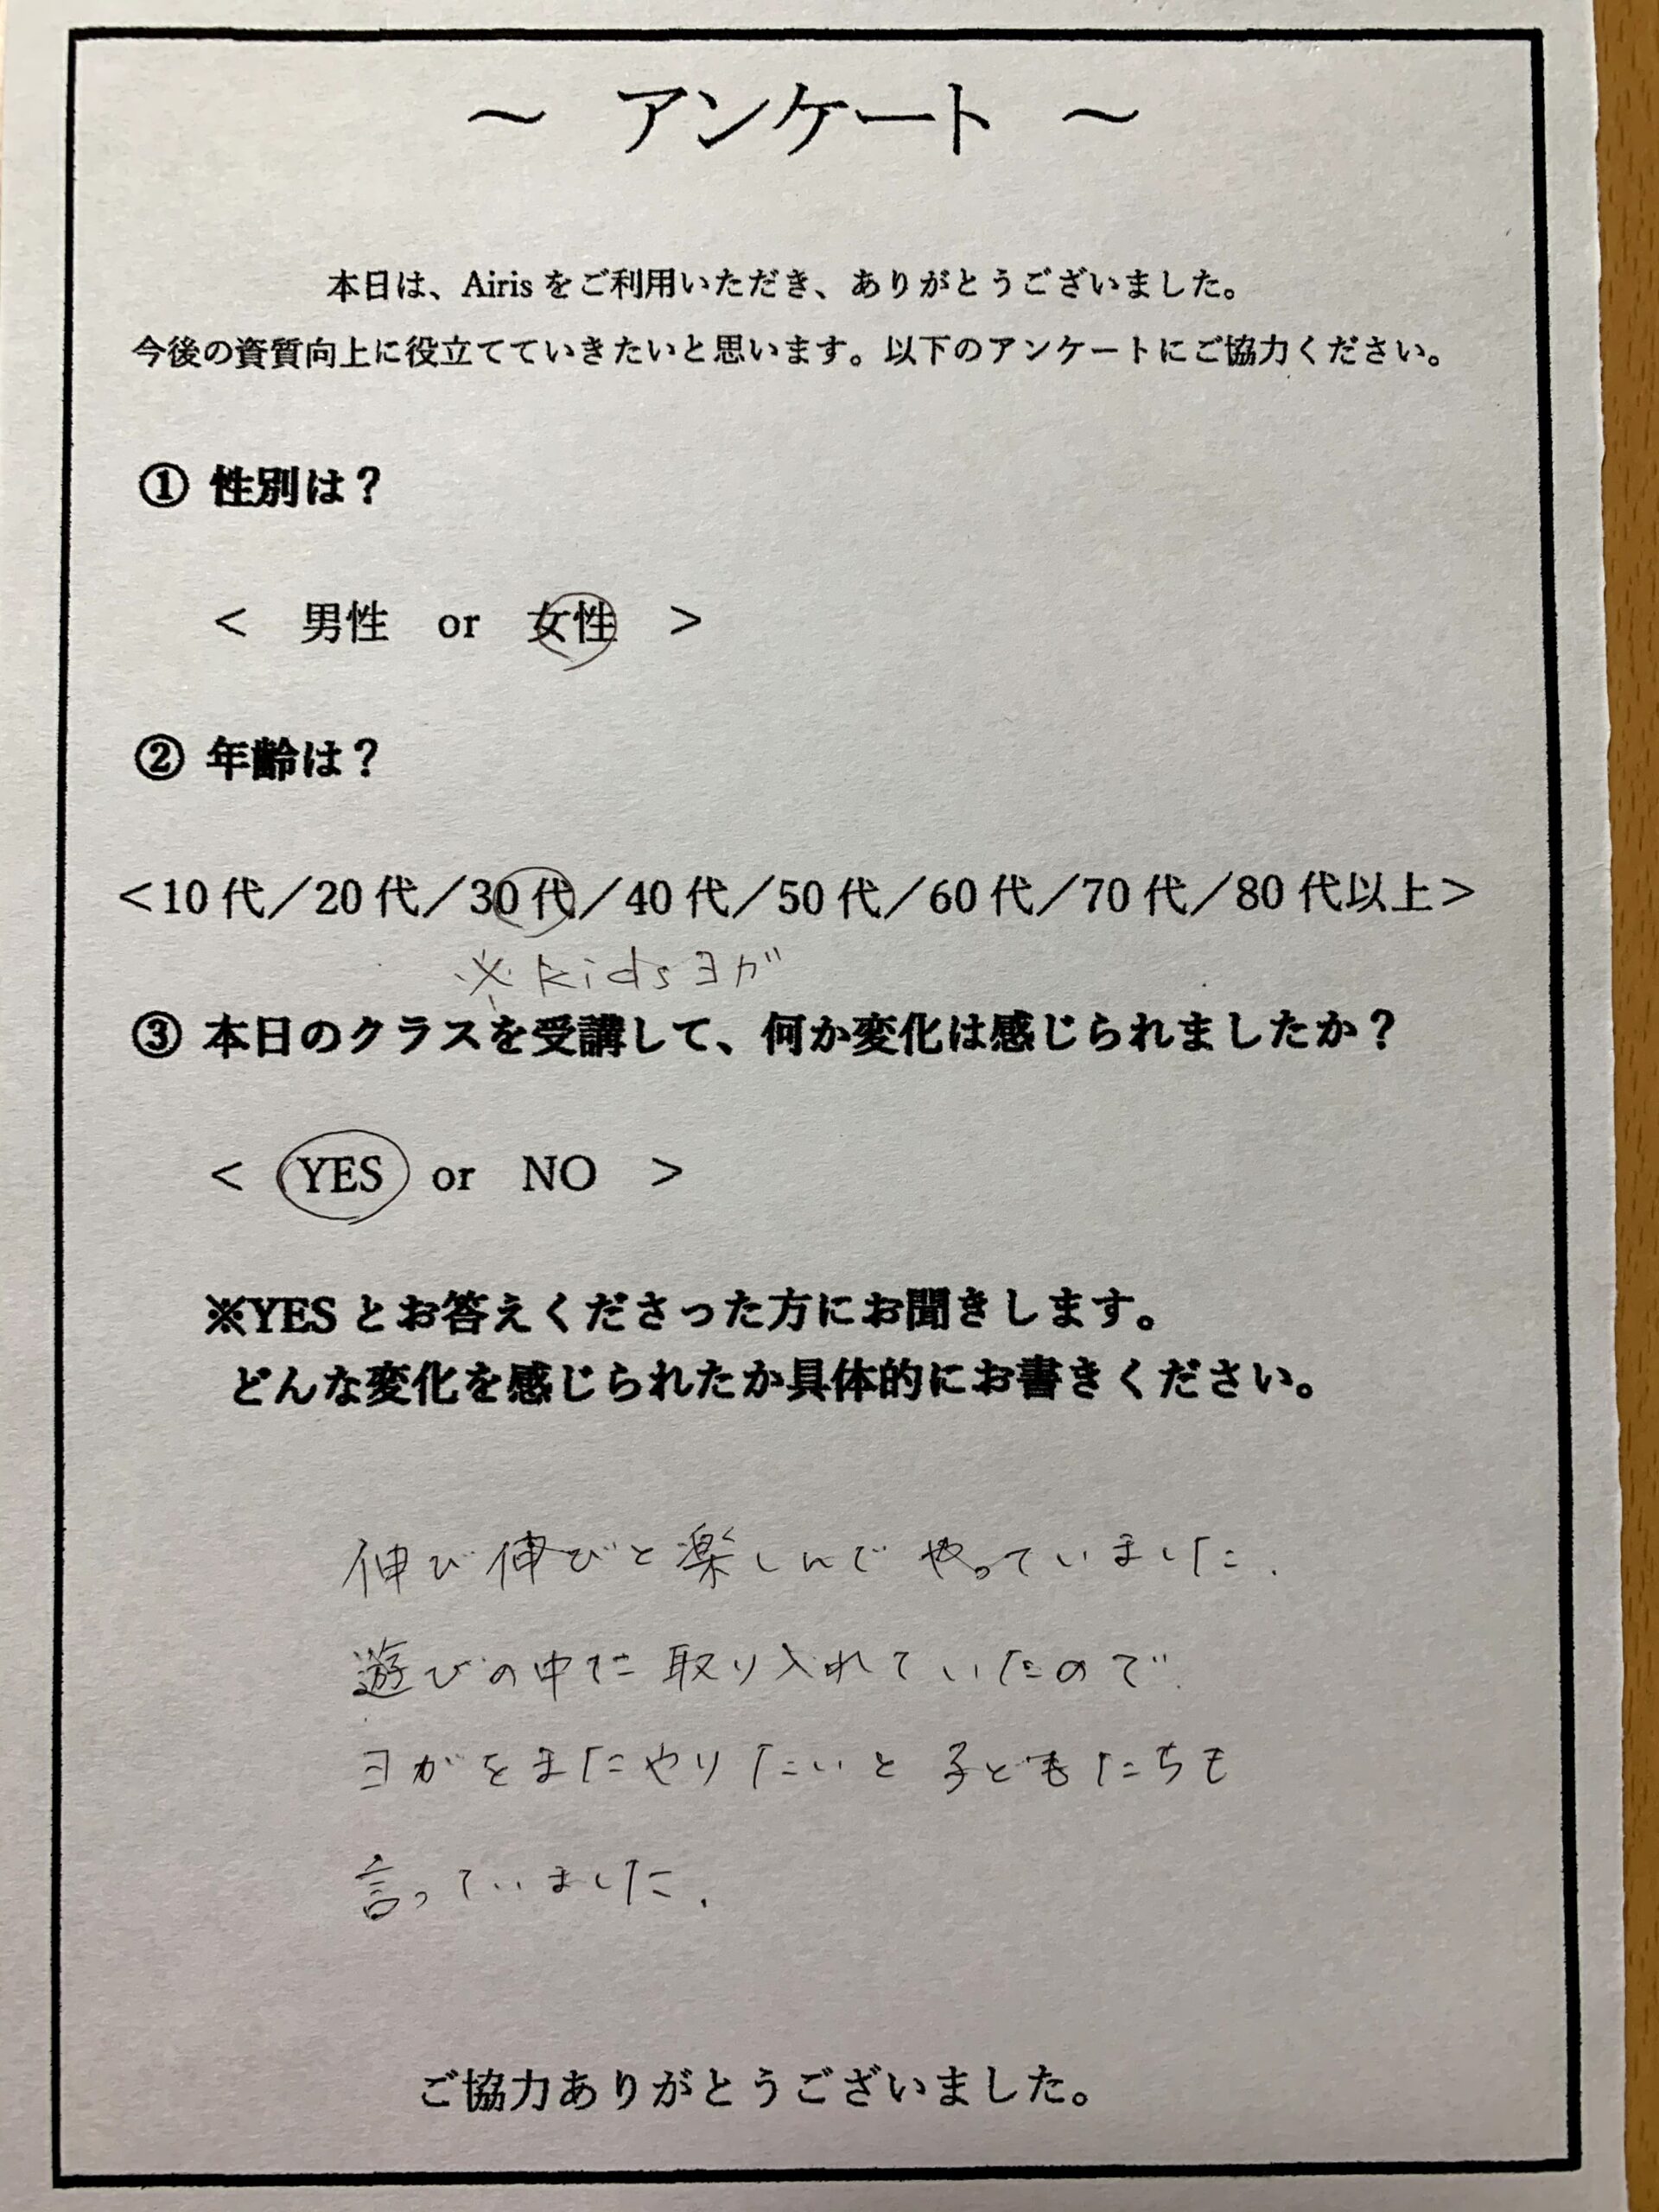 ～ アンケート ～
本日は、Airis をご利用いただき、ありがとうございました。
今後の資質向上に役立てていきたいと思います。以下のアンケートにご協力ください。
① 性別は？
＜ 男性 or 女性 ＞
② 年齢は？
＜10 代／20 代／30 代／40 代／50 代／60 代／70 代／80 代以上＞
※ kidsヨガ
③ 本日のクラスを受講して、何か変化は感じられましたか？
＜ YES or NO ＞
※YES とお答えくださった方にお聞きします。
どんな変化を感じられたか具体的にお書きください。
伸び伸びと楽しんでやっていました.
遊びの中に取り入れていたので.
ヨガをまたやりたいと子どもたちも
言っていました.
ご協力ありがとうございました。